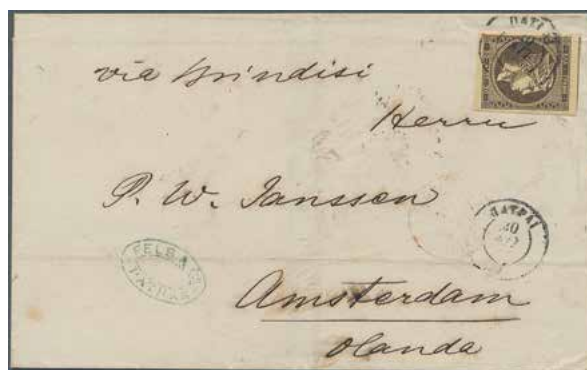 via Brindisi
Herrn
P. W. Janssen
ΠΑΤΡΑΙ
30
FELS &
PATRAS
Amsterdam
Olanda